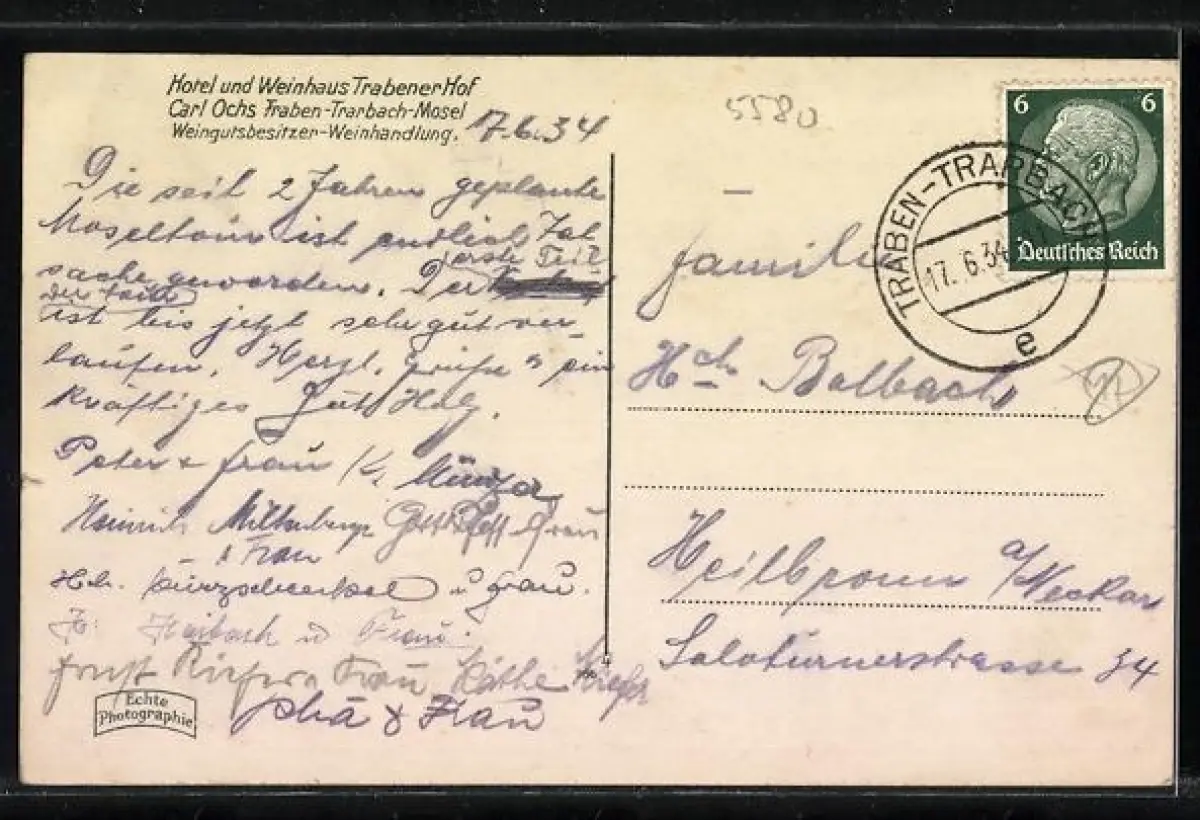 Hotel und Weinhaus Trabener Hof
Carl Ochs Traben-Trarbach-Mosel
Weingutsbesitzer-Weinhandlung.
17.6.34
Die seit 2 Jahren geplante
Moseltour ist endlich Tat
sache geworden. Der erste Teil
der
ist bis jetzt sehr gut ver-
laufen. Herzl. Grüße u ein
kräftiges Gut Holz.
Peter & Frau
Heinrich Frau
& Frau
Hch. u Frau.
u Frau.
Ernst Frau Käthe
& Frau
Echte
Photographie
5580
6 6
Deutsches Reich
TRABEN-TRARBACH
17.6.34
e
Familie
Hch Balbach
Heilbronn a/Neckar
Soloturnerstrasse 34